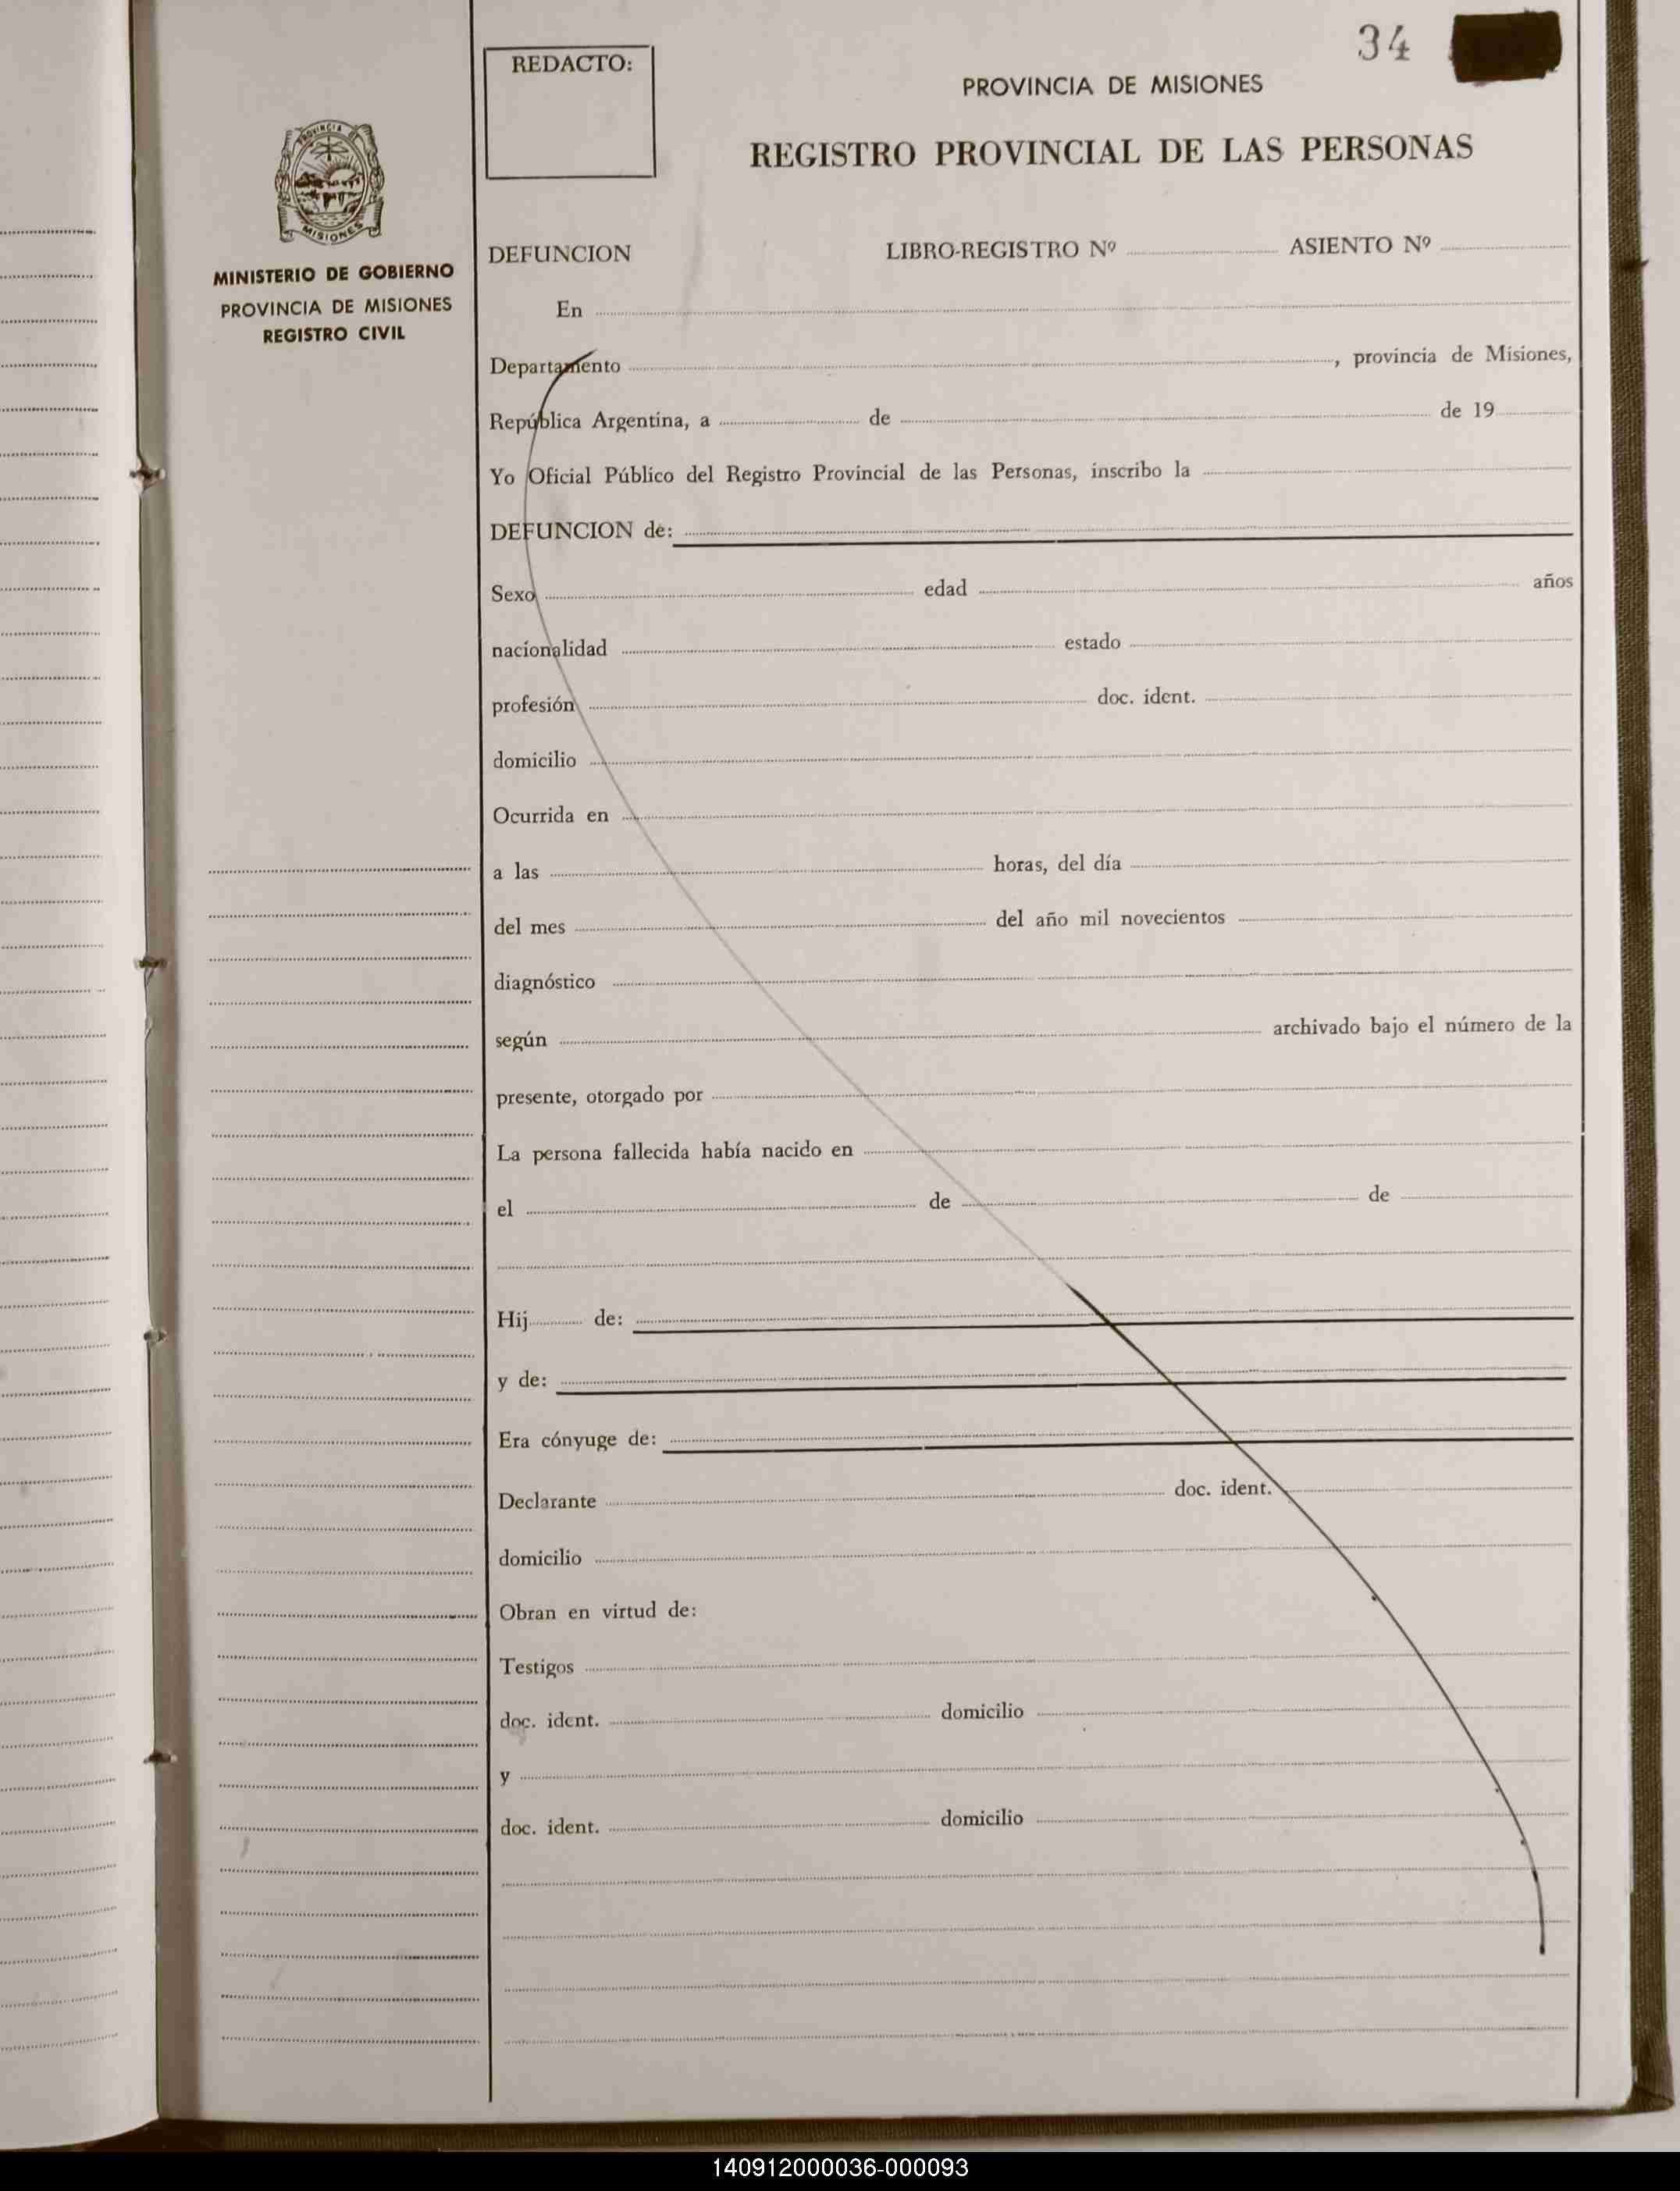 34
REDACTO:
PROVINCIA DE MISIONES
REGISTRO PROVINCIAL DE LAS PERSONAS
PROVINCIA DE
MISIONES
MINISTERIO DE GOBIERNO
PROVINCIA DE MISIONES
REGISTRO CIVIL
DEFUNCION LIBRO-REGISTRO Nº ASIENTO Nº
En
Departamento , provincia de Misiones,
República Argentina, a de de 19
Yo Oficial Público del Registro Provincial de las Personas, inscribo la
DEFUNCION de:
Sexo edad años
nacionalidad estado
profesión doc. ident.
domicilio
Ocurrida en
a las horas, del día
del mes del año mil novecientos
diagnóstico
según archivado bajo el número de la
presente, otorgado por
La persona fallecida había nacido en
el de de
Hij de:
y de:
Era cónyuge de:
Declarante doc. ident.
domicilio
Obran en virtud de:
Testigos
doc. ident. domicilio
y
doc. ident. domicilio
140912000036-000093